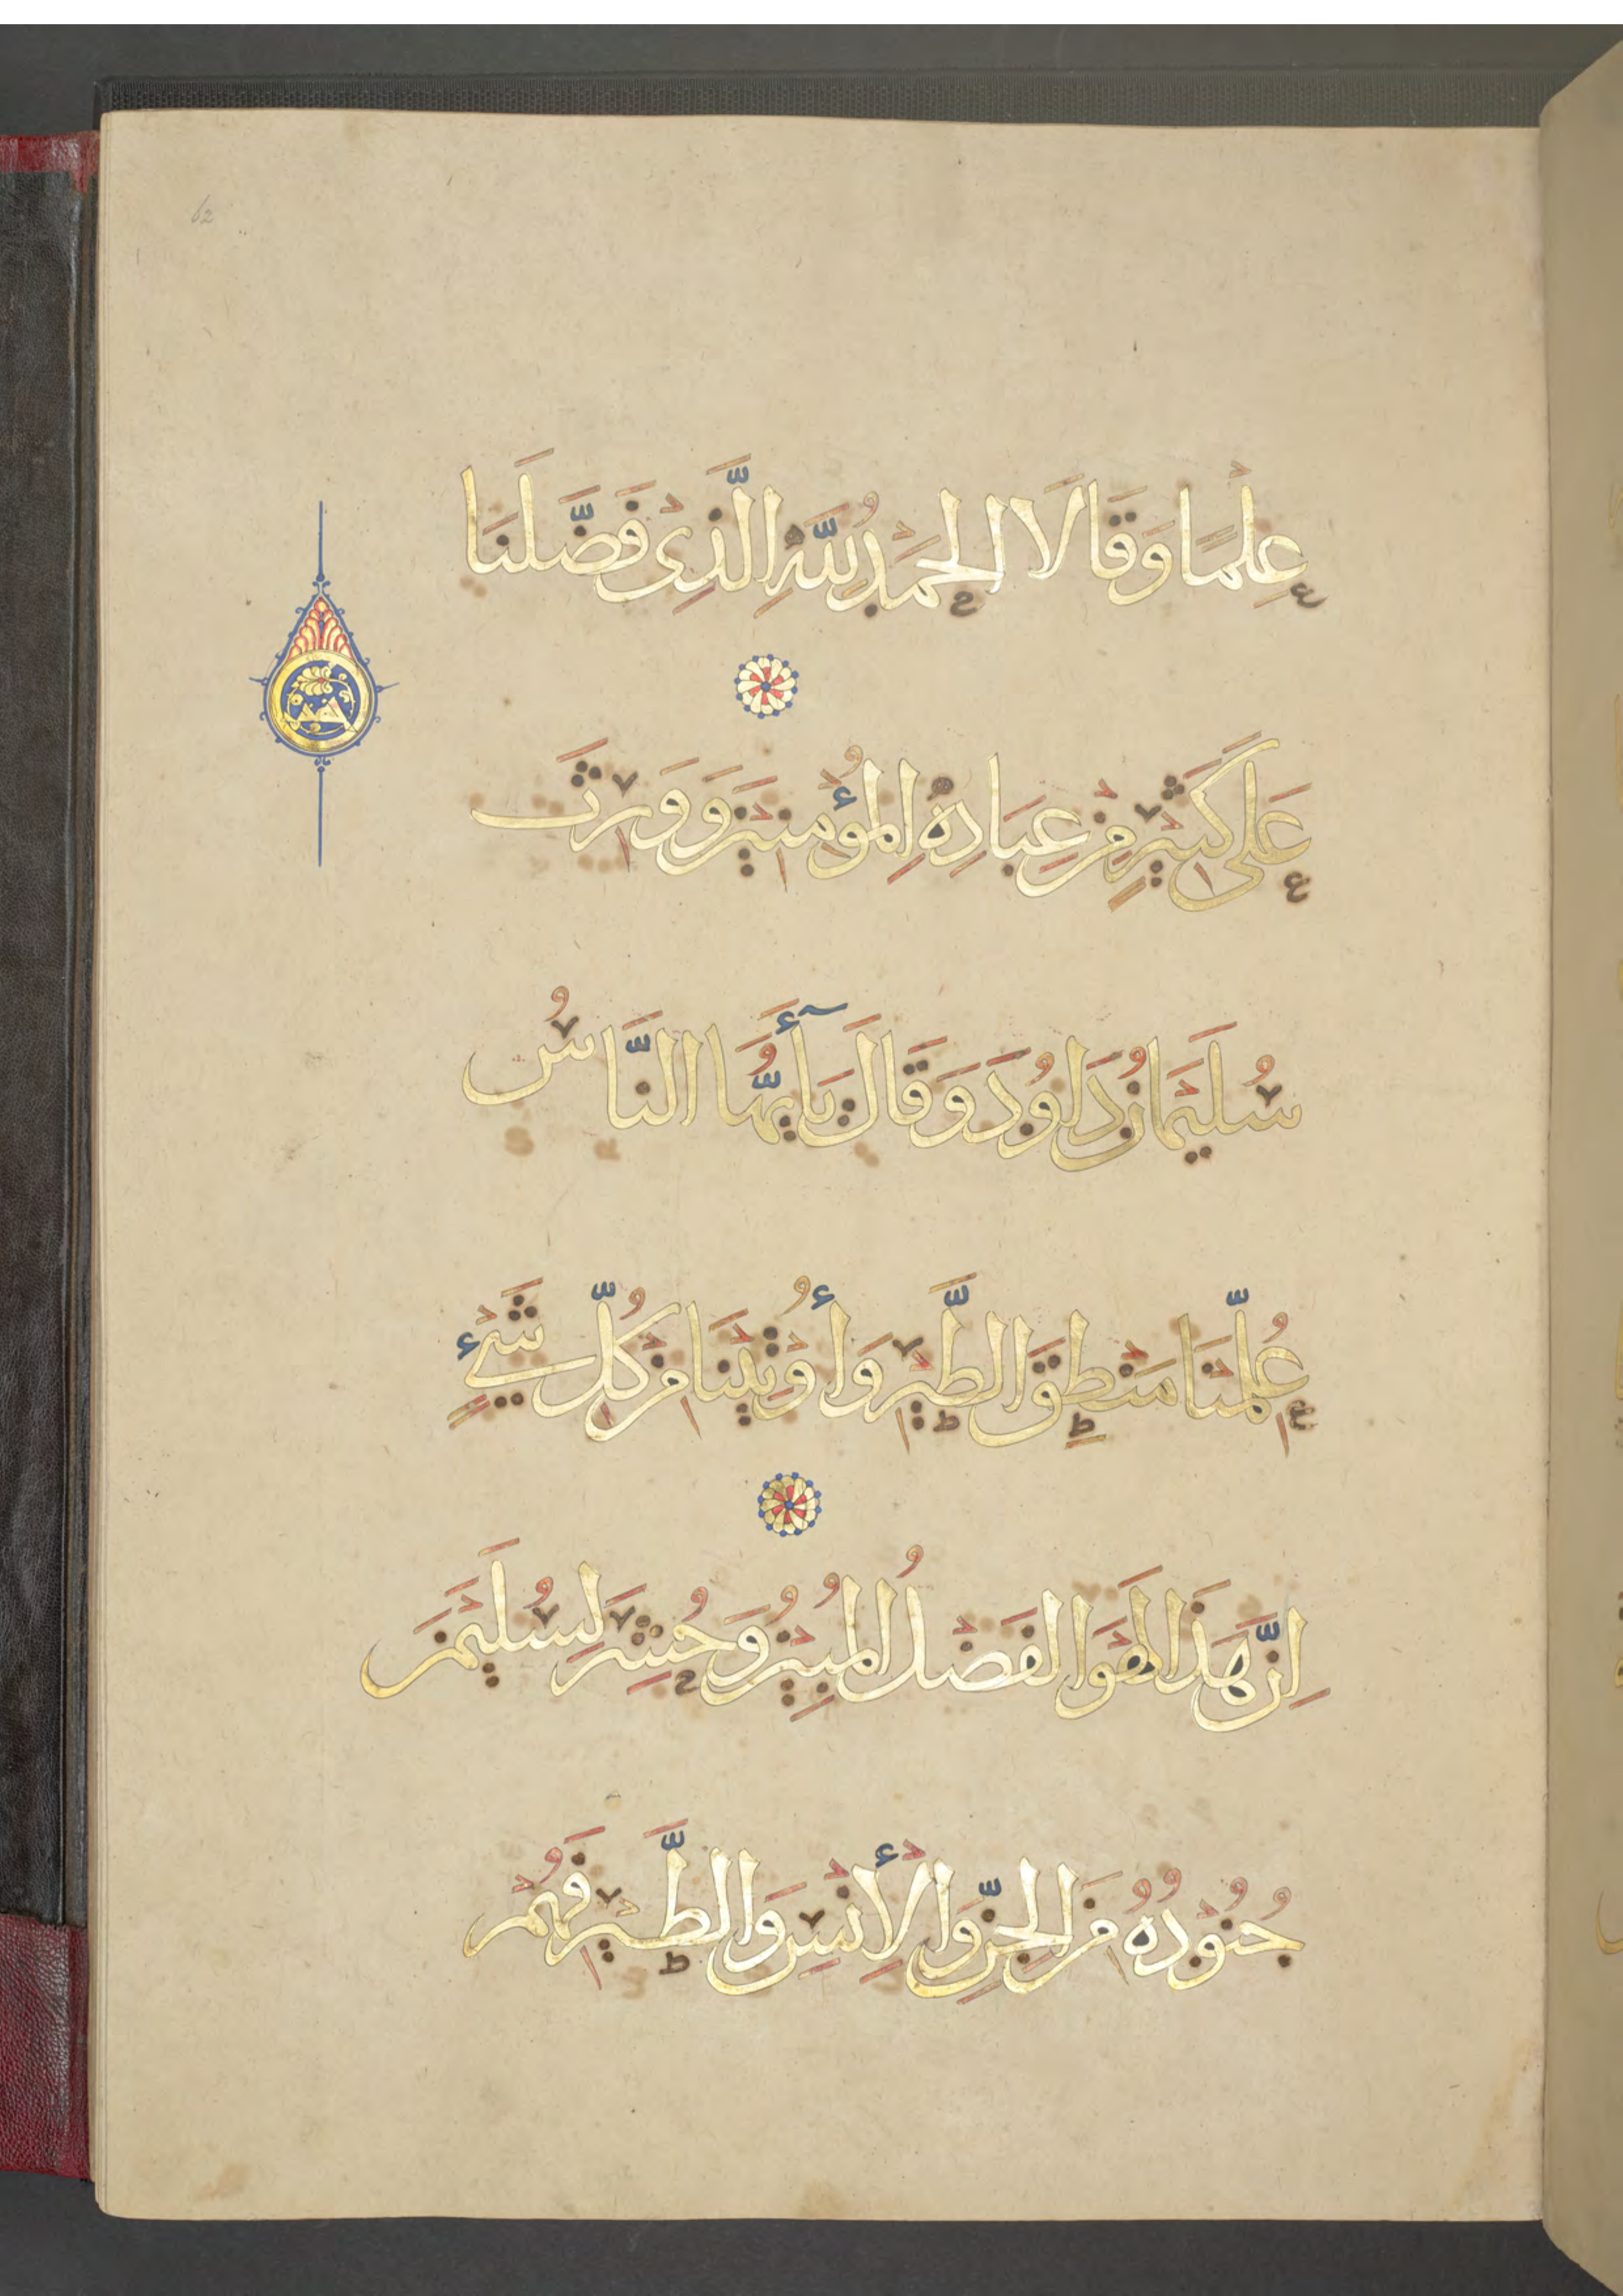 62
عِلْمًا وَقَالَا الْحَمْدُ لِلَّهِ الَّذِي فَضَّلَنَا
عَلَى كَثِيرٍ مِنْ عِبَادِهِ الْمُؤْمِنِينَ وَوَرِثَ
سُلَيْمَانُ دَاوُدَ وَقَالَ يَآأَيُّهَا النَّاسُ
عُلِّمْنَا مَنْطِقَ الطَّيْرِ وَأُوتِينَا مِنْ كُلِّ شَيْءٍ
اِنَّ هَذَا لَهُوَ الْفَضْلُ الْمُبِينُ وَحُشِرَ لِسُلَيْمَنَ
جُنُودُهُ مِنَ الْجِنِّ وَالْأِنْسِ وَالطَّيْرِ فَهُمْ